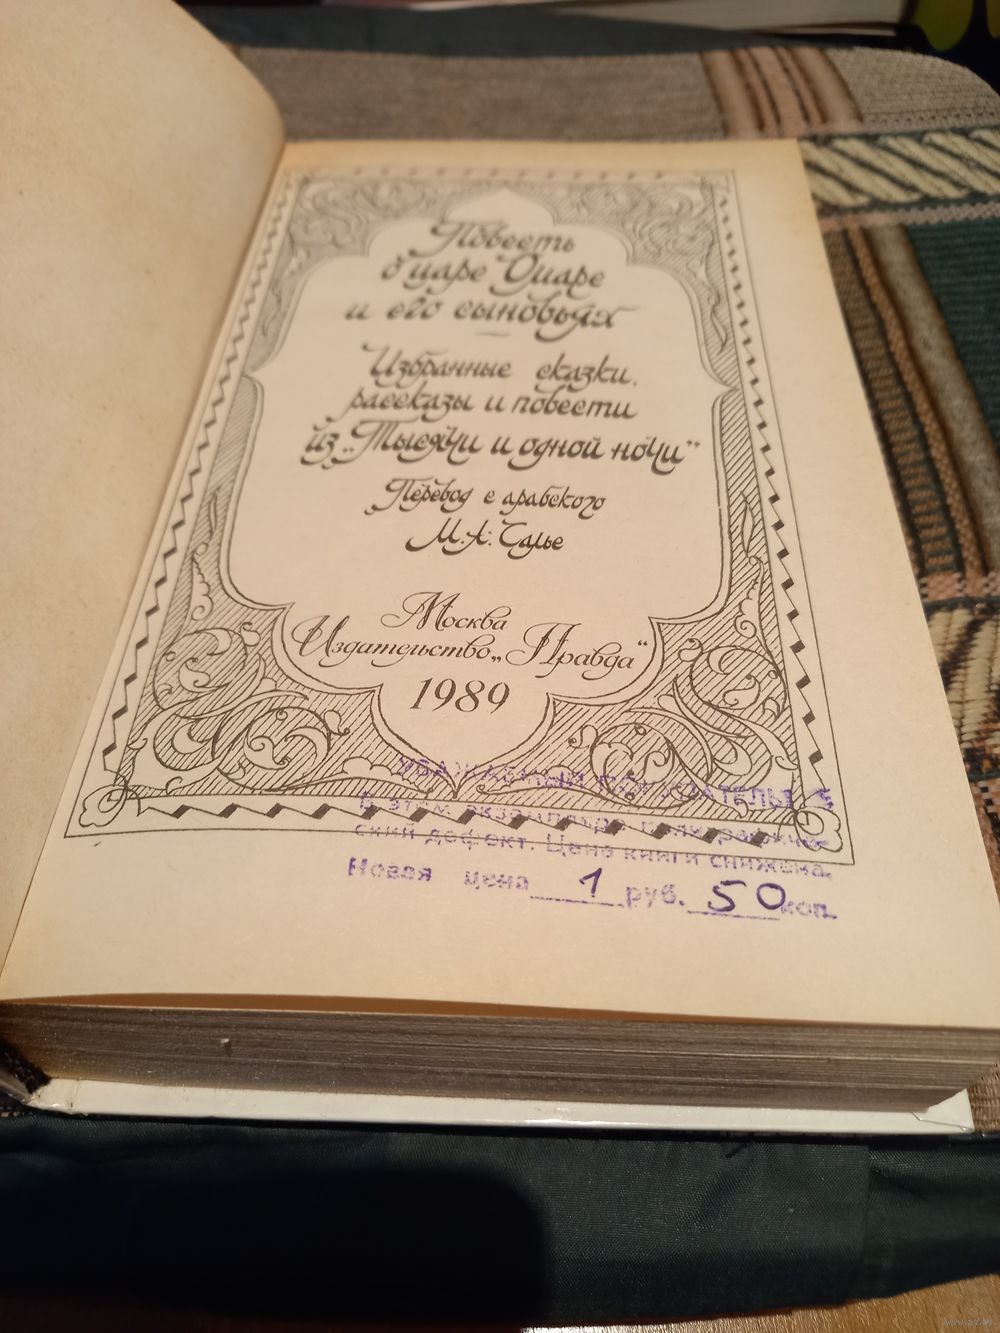 Повесть
о царе Омаре
и его сыновьях
Избранные сказки,
рассказы и повести
из „Тысячи и одной ночи“
Перевод с арабского
М. А. Салье
Москва
Издательство „Правда“
1989
УВАЖАЕМЫЙ ПОКУПАТЕЛЬ!
В этом экземпляре полиграфиче-
ский дефект. Цена книги снижена.
Новая цена 1 руб. 50 коп.